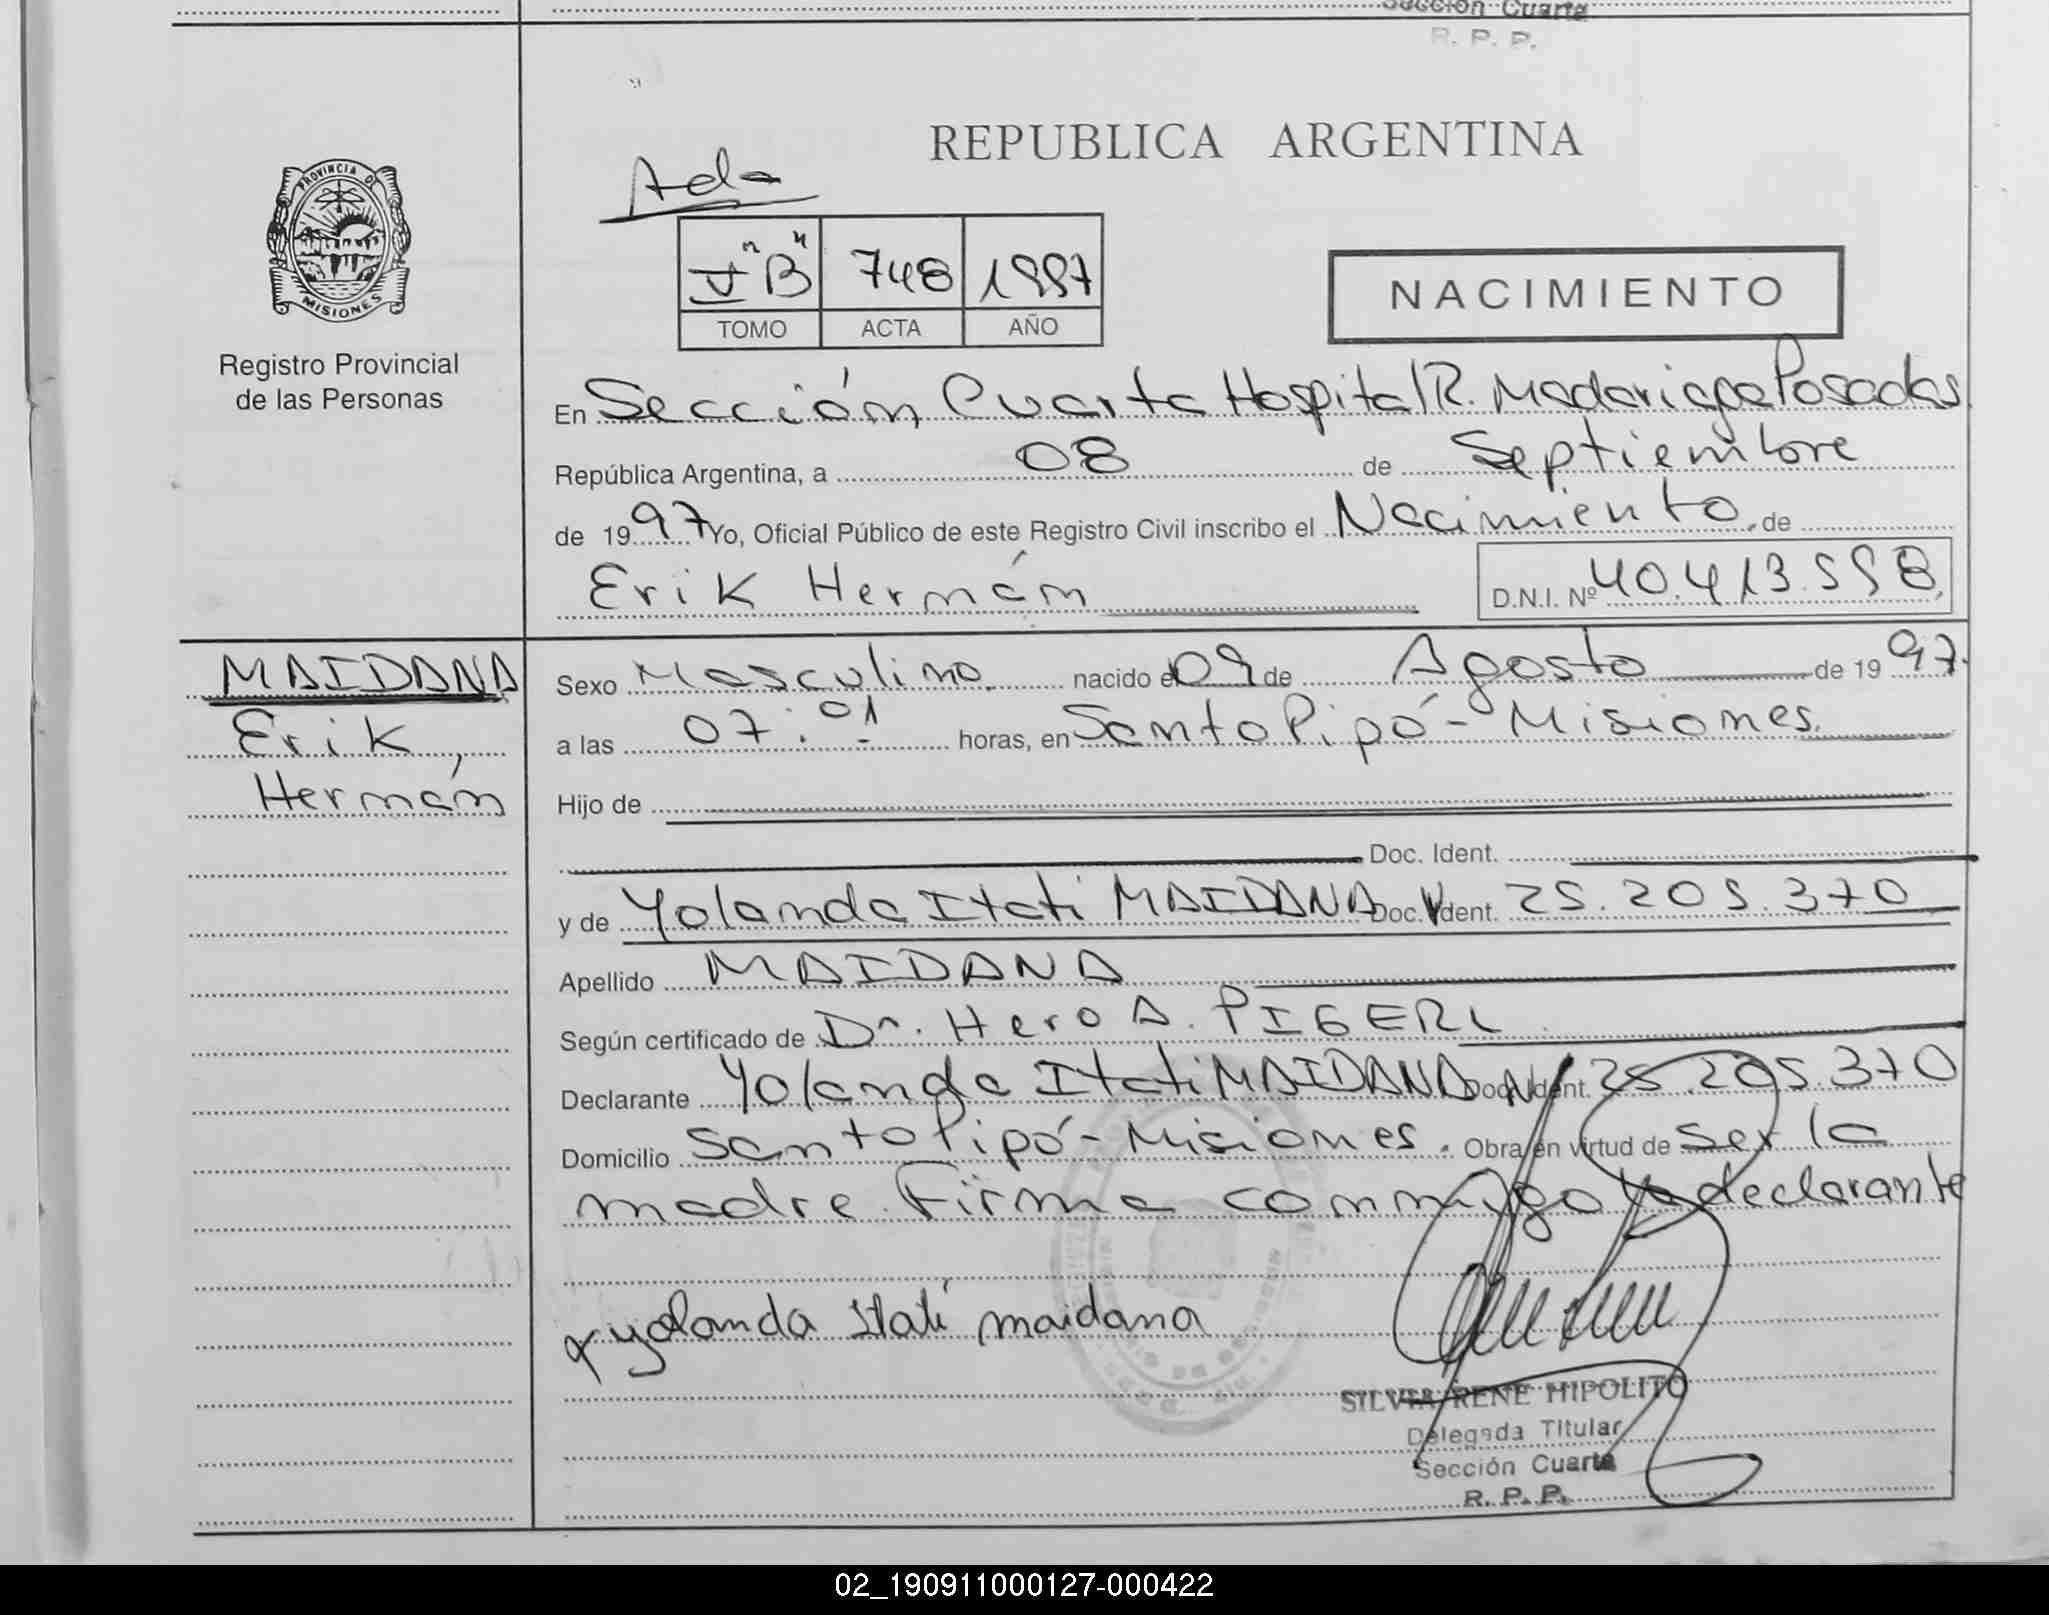 Sección Cuarta
R. P. P.
REPUBLICA ARGENTINA
PROVINCIA DE
MISIONES
"B" 748 1997
TOMO ACTA AÑO
NACIMIENTO
Registro Provincial
de las Personas
En Sección Cuarta Hospital R. Madariaga Posadas
República Argentina, a 08 de Septiembre
de 1997 Yo, Oficial Público de este Registro Civil inscribo el Nacimiento de
Erik Hermán D.N.I. Nº 40.413.558
MAIDANA
Erik,
Hermán
Sexo Masculino nacido el 09 de Agosto de 1997.
a las 07:01 horas, en Santo Pipó - Misiones.
Hijo de
Doc. Ident.
y de Yolanda Itatí MAIDANA Doc. Ident. 25.205.370
Apellido MAIDANA
Según certificado de Dr. Hero A. PIGERL
Declarante Yolanda Itatí MAIDANA Doc. Ident. 25.205.370
Domicilio Santo Pipó - Misiones. Obra en virtud de ser la
madre. Firma conmigo la declarante
yolanda Itatí maidana
SILVIA RENE HIPOLITO
Delegada Titular
Sección Cuarta
R. P. P.
02_190911000127-000422